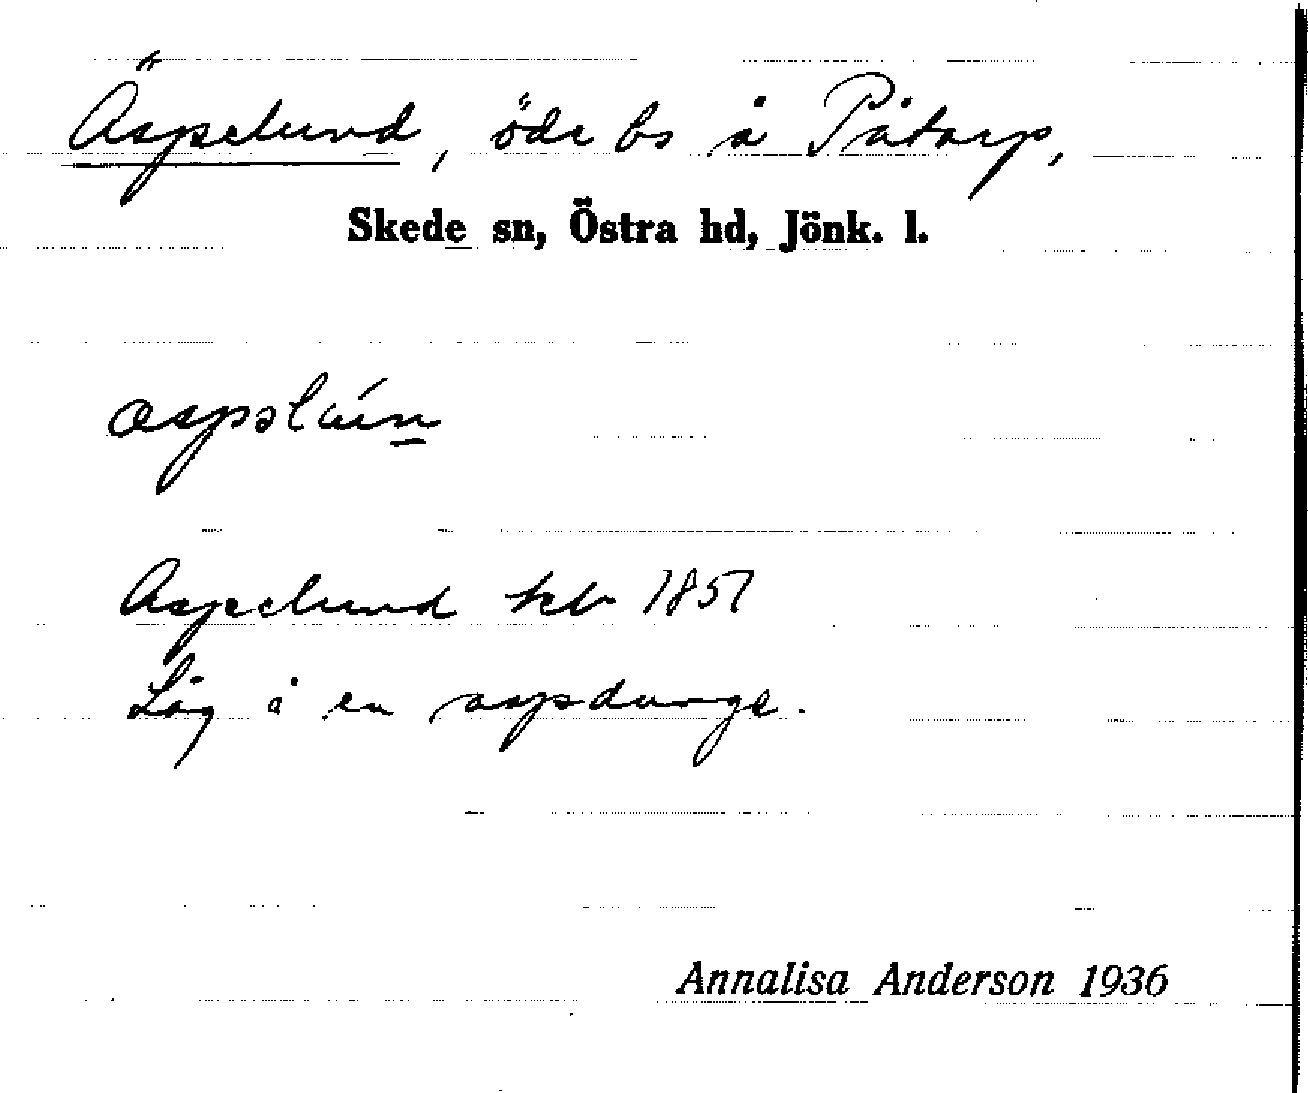 Äspelund, öde bs å Påtorp,
Skede sn, Östra hd, Jönk. l.
æspəlún
Aspelund hfl 1851
Låg i en aspdunge.
Annalisa Anderson 1936